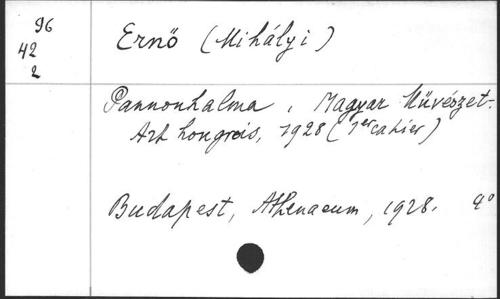 96
42
2
Ernö (Mihályi)
Pannonhalma, Magyar Müvészet.
Art hongrois, 1928 (1er cahier)
Budapest, Athenaeum, 1928. 4°